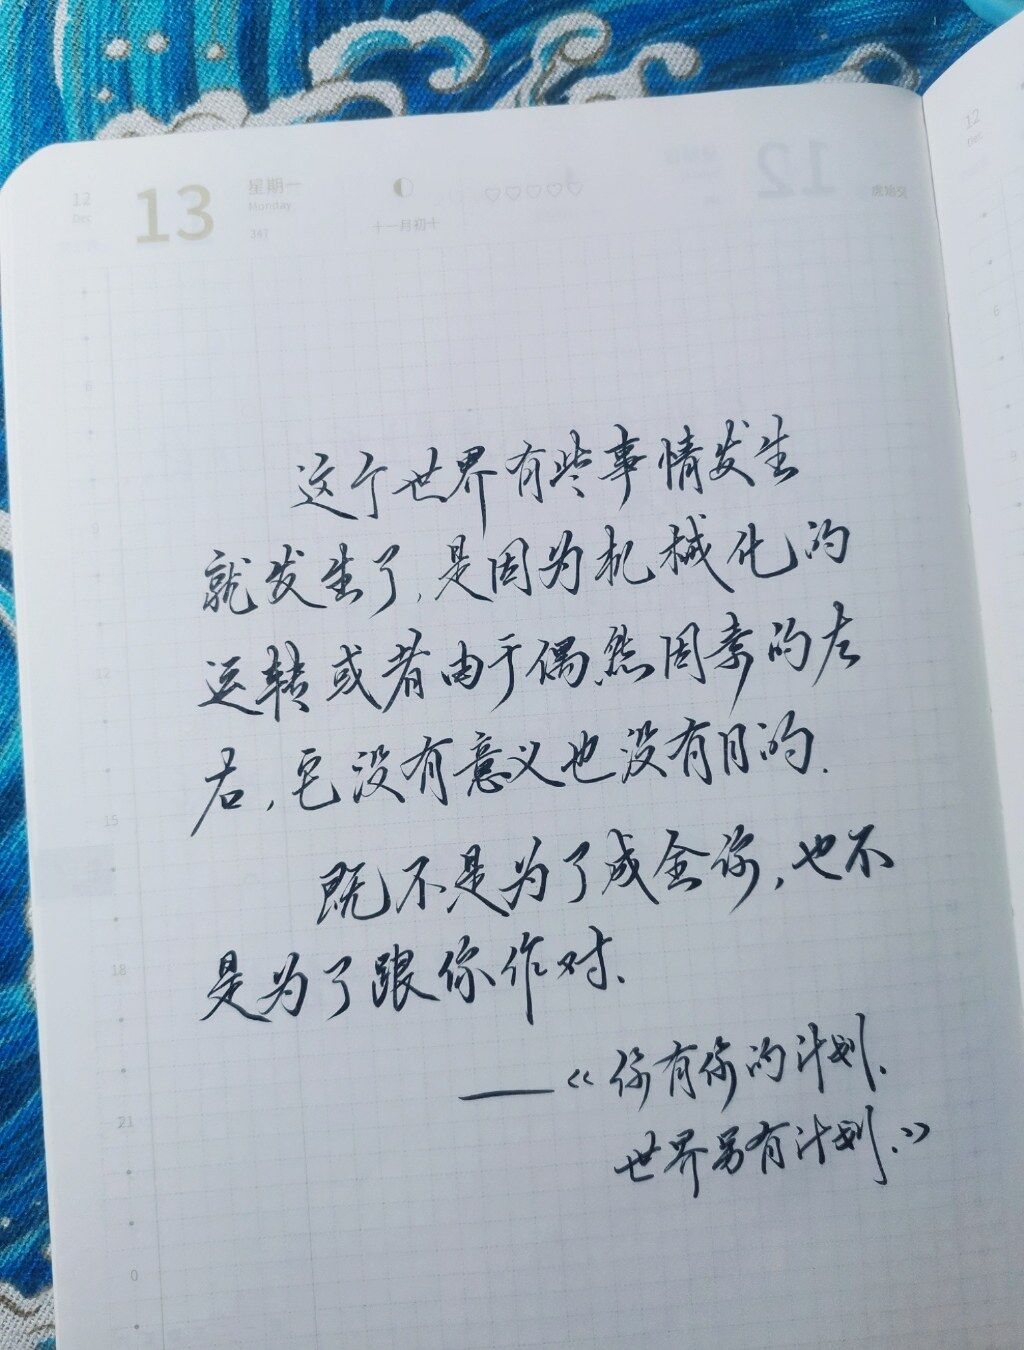 12
Dec
13
星期一
Monday
347
十一月初十
12
虎始交
12
Dec
6
9
12
15
18
21
0
6
9
这个世界有些事情发生
就发生了,是因为机械化的
运转或者由于偶然因素的左
右,它没有意义也没有目的.
既不是为了成全你,也不
是为了跟你作对.
——《你有你的计划.
世界另有计划.》